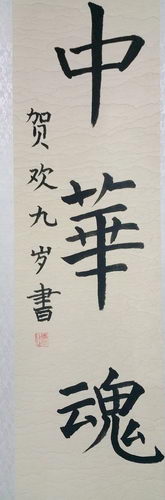 中華魂
贺欢九岁書